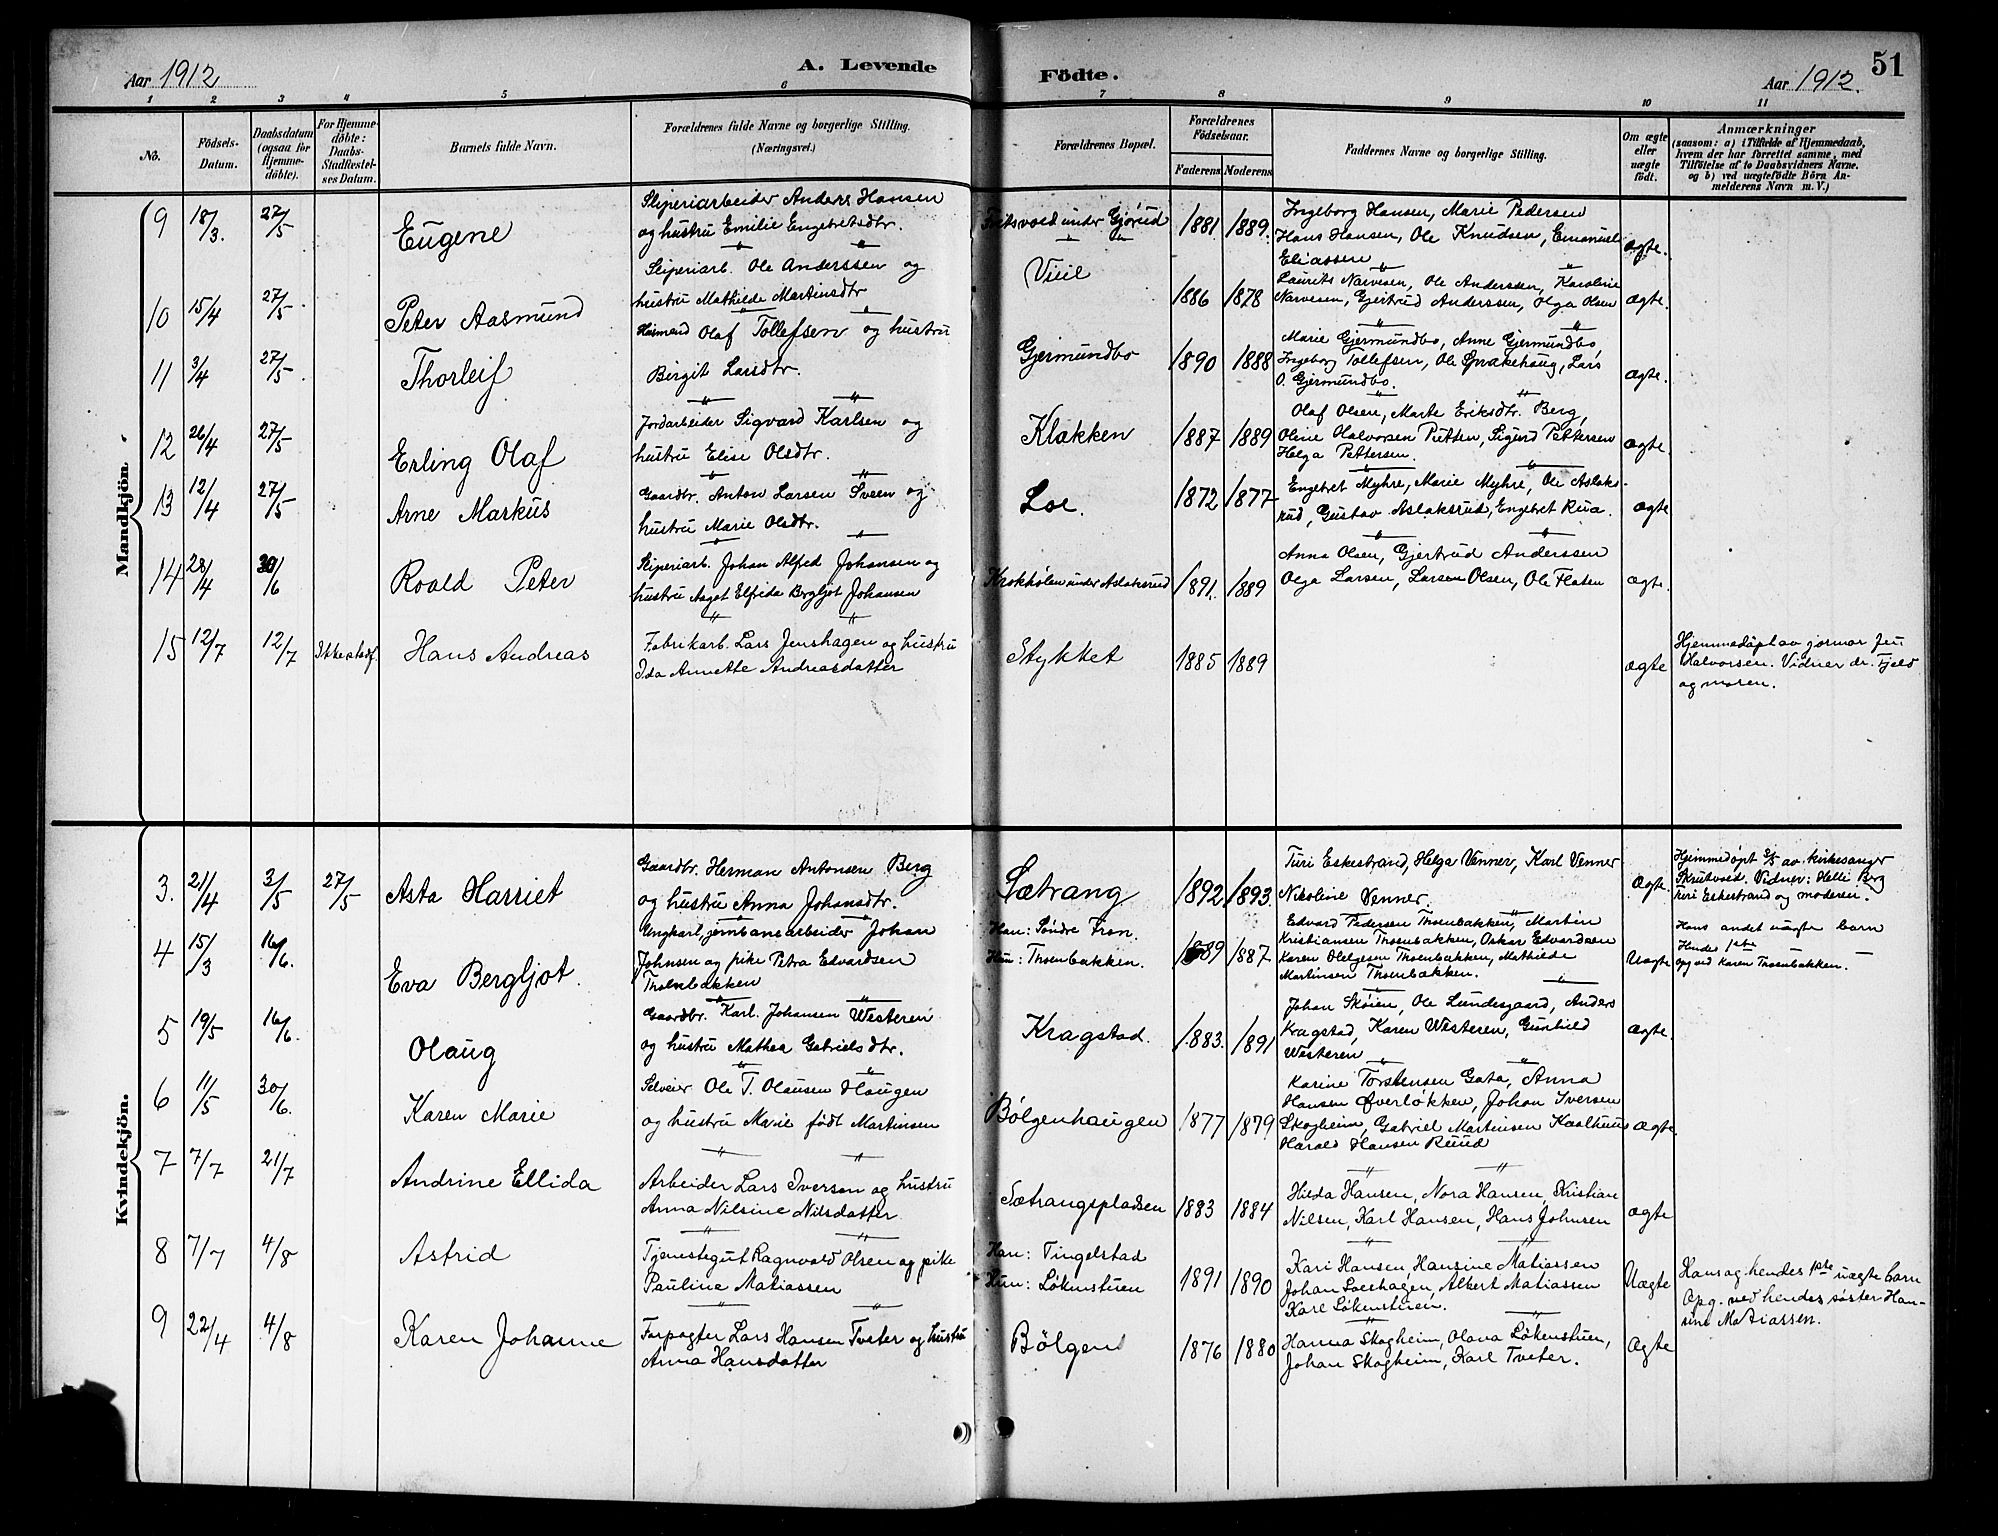 Aar 1912
A. Levende
Födte.
Aar 1912.
51
1 2 3 4 5 6 7 8 9 10 11
No.
Födsels-
Datum.
Daabsdatum
(ogsaa for
Hjemme-
döbte).
For Hjemme-
döbte:
Daabs-
Stadfæstel-
ses Datum.
Barnets fulde Navn.
Forældrenes fulde Navne og borgerlige Stilling.
(Næringsvei.)
Forældrenes Bopæl.
Forældrenes
Födselsaar.
Faderens
Moderens
Faddernes Navne og borgerlige Stilling.
Om ægte
eller
uægte
födt.
Anmærkninger
(saasom: a) i Tilfælde af Hjemmedaab,
hvem der har forrettet samme, med
Tilföielse af to Daabsvidners Navne.
og b) ved uægtefödte Börn An-
melderens Navn m. V.)
Mandkjön.
9 18/3. 27/5 Eugene
Sliperiarbeider Anders Hansen
og hustru Emilie Engebretsdtr.
under Gjørud 1881. 1889.
Ingeborg Hansen, Marie Pedersen
Hans Hansen, Ole Knudsen, Emanuel
Eliassen
ægte.
10 15/4 27/5 Peter Aasmund
Sliperiarb. Ole Anderssen og
hustru Mathilde Martinsdtr
Viul 1886 1878
Laurits Narvesen, Ole Anderssen, Karoline
Narvesen, Gjertrud Anderssen, Olga Olsen
ægte.
11 3/4 27/5 Thorleif
Husmand Olaf Tollefsen og hustru
Bergit Larsdtr.
Gjermundbo 1890 1888
Marie Gjermundbo, Anne Gjermundbo
Ingeborg Tollefsen, Ole Sprakehaug, Lars
O. Gjermundbo.
ægte.
12 26/4 27/5 Erling Olaf
Jordarbeider Sigvard Karlsen og
hustru Elise Olsdtr.
Klækken 1887 1889
Olaf Olsen, Marte Eriksdtr. Berg,
Oline Halvorsen Putten, Sigurd Pettersen
Helga Pettersen.
ægte.
13 12/4 27/5 Arne Markus
Gaardbr. Anton Larsen Sveen og
hustru Marie Olsdtr.
Loe. 1872 1877
Engebret Myhre, Marie Myhre, Ole Aslaks-
rud, Gustav Aslaksrud, Engebret Rua.
ægte
14 28/4 30/6 Roald Peter
Sliperiarb. Johan Alfred Johansen og
hustru Aagot Elfrida Bergljot Johansen
Krokhølen under Aslaksrud 1891. 1889
Anna Olsen, Gjertrud Anderssen
Olga Larsen, Larsen Olsen, Ole Flaten
ægte.
15 12/7 12/7 Ikke stadf. Hans Andreas
Fabrikarb. Lars Jenshagen og hustru
Ida Annette Andreasdatter
Stykket 1885 1889
ægte
Hjemmedøpt av jormor Jen
Halvorsen. Vidner dr. Fjeld
og moren.
Kvindekjön.
3. 21/4 3/5 27/5 Asta Harriet
Gaardbr. Herman Antonsen Berg
og hustru Anna Johansdtr.
Sætrang 1892 1893.
Turi Eskestrand, Helga Venner, Karl Venner
Nikoline Venner.
Ægte.
Hjemmedøpt 3/5 av kirkesanger
Skrutvold. Vidner: Helli Berg
Turi Eskestrand og moderen.
4 15/3 16/6. Eva Bergljot
Ungkarl, jernbanearbeider Johan
Johnsen og pike Petra Edvardsen
Thoenbakken
Han: Søndre Fron.
Hun: Thoenbakken. 1889 1887
Edvard Pedersen Thoenbakken, Martin
Kristiansen Thoenbakken, Oskar Edvardsen
Karen Helgesen Thoenbakken, Mathilde
Martinsen Thoenbakken.
Uægte
Hans andet uægte barn
Hendes 1ste
opg ved Karen Thoenbakken.
5 19/5 16/6. Olaug
Gaardbr. Karl Johansen Westeren
og hustru Mathea Gabrielsdtr.
Kragstad. 1883. 1891
Johan Skøien, Ole Lundesgaard, Anders
Kragstad, Karen Westeren, Gunhild
Westeren
ægte.
6 11/5 30/6. Karen Marie
Selveier Ole T. Olausen Haugen
og hustru Marie født Martinsen
Bølgenhaugen 1877 1879
Karine Torstensen Gata, Anna
Hansen Øverløkken, Johan Iversen
Skogheim, Gabriel Martinsen Kaalhuus
Harald Hansen Ruud
ægte.
7 7/7 21/7 Andrine Ellida
Arbeider Lars Iverson og hustru
Anna Nilsine Nilsdatter
Sætrangspladsen 1883 1884
Hilda Hansen, Nora Hansen, Kristian
Nilsen, Karl Hansen, Hans Johnsen
ægte
8 7/7 4/8 Astrid
Tjenestegut Ragnvald Olsen og pike
Pauline Matiassen
Han: Tingelstad
Hun: Løkenstuen 1891 1890
Kari Hansen, Hansine Matiassen
Johan Loeshagen, Albert Matiassen
Karl Løkenstuen.
Uægte
Hans og hendes 1ste uægte barn
Opg. ved hendes søster Han-
sine Matiassen.
9 22/4 4/8 Karen Johanne
Forpagter Lars Hansen Tveter og hustru
Anna Hansdatter
Bølgen 1876 1880
Hanna Skogheim, Olava Løkenstuen,
Johan Skogheim, Karl Tveter.
ægte